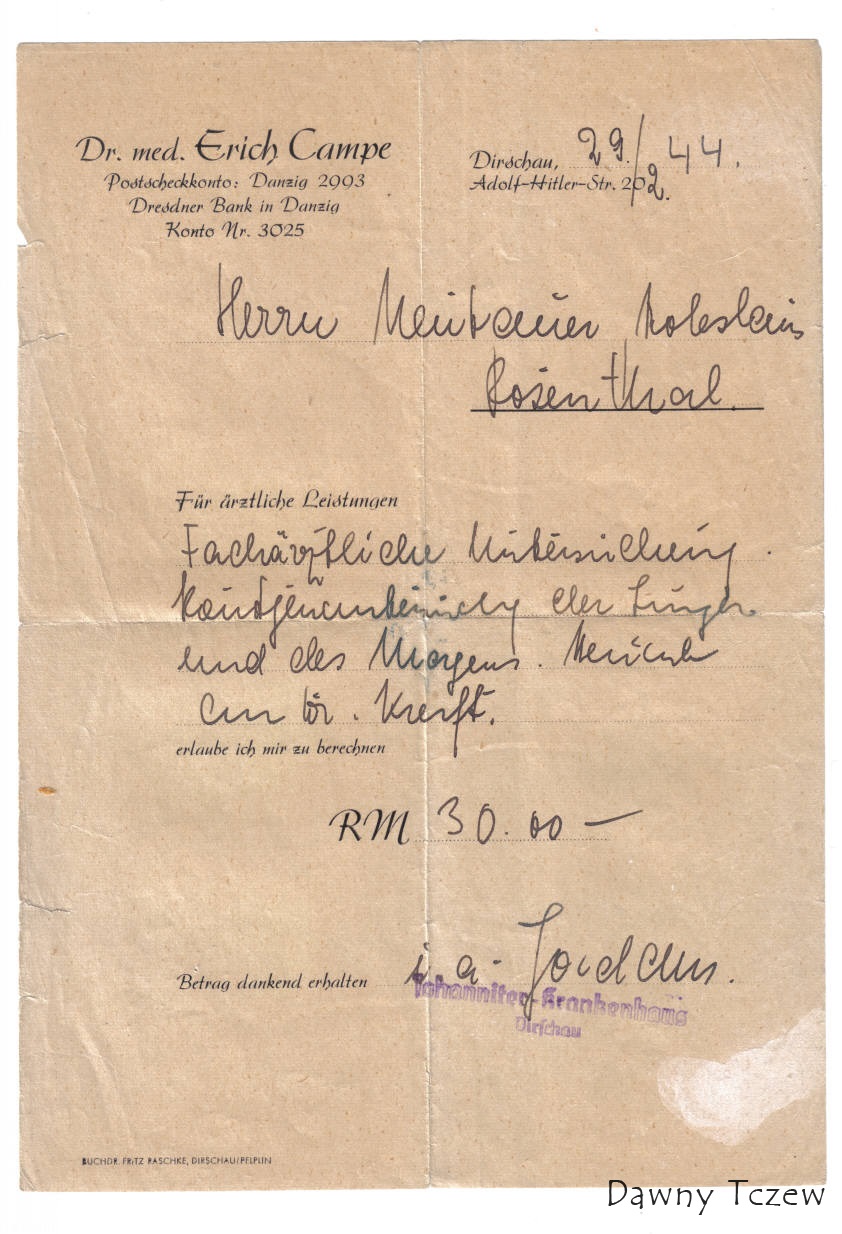 Dr. med. Erich Campe
Postscheckkonto: Danzig 2993
Dresdner Bank in Danzig
Konto Nr. 3025
Dirschau, 29./2. 44.
Adolf-Hitler-Str. 20
Herrn
Rosenthal.
Für ärztliche Leistungen
Fachärztliche Untersuchung.
der Lungen
und des Magens.
an Dr.
erlaube ich mir zu berechnen
RM 30.00 —
Betrag dankend erhalten i. a. Jordan.
Johanniter-Krankenhaus
Dirschau
BUCHDR. FRITZ RASCHKE, DIRSCHAU/PELPLIN
Dawny Tczew